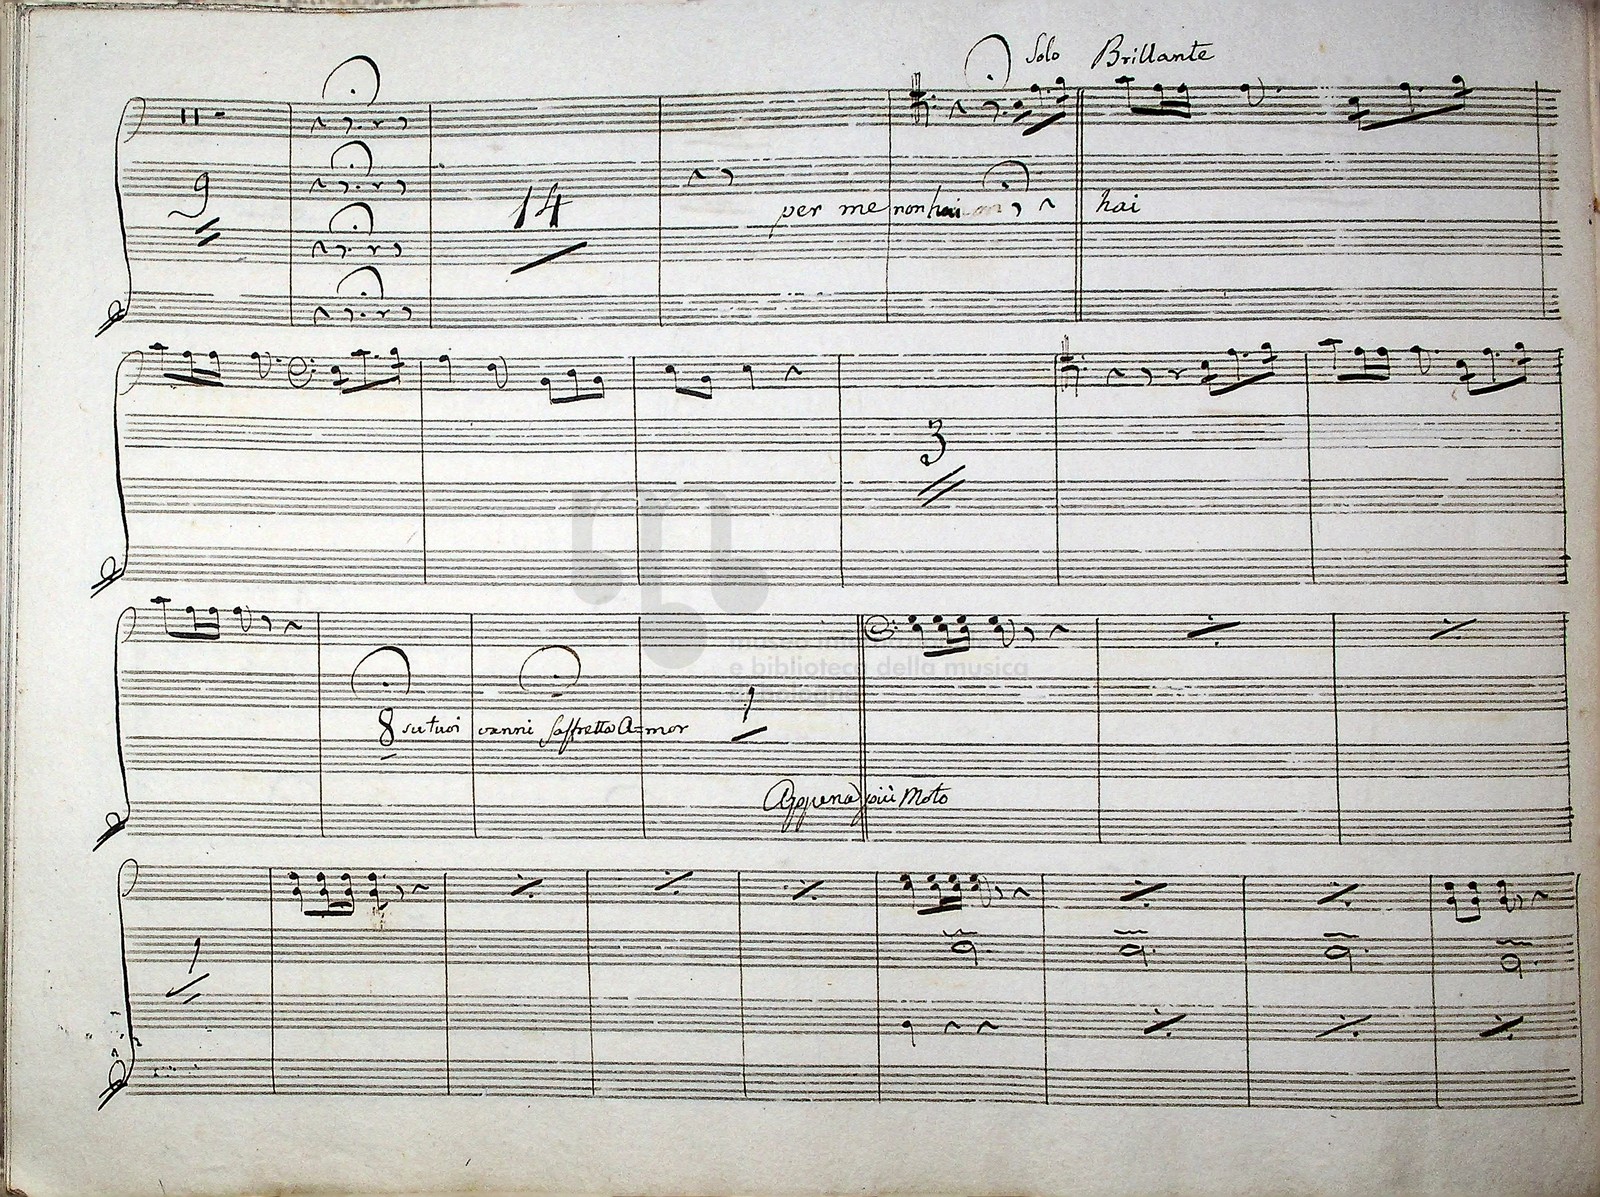 Solo Brillante
9
14
per me non hai hai
3
museo internazionale
e biblioteca della musica
di bologna
8 su tuoi vanni s'affretta A=mor
1
Appena più Moto
1